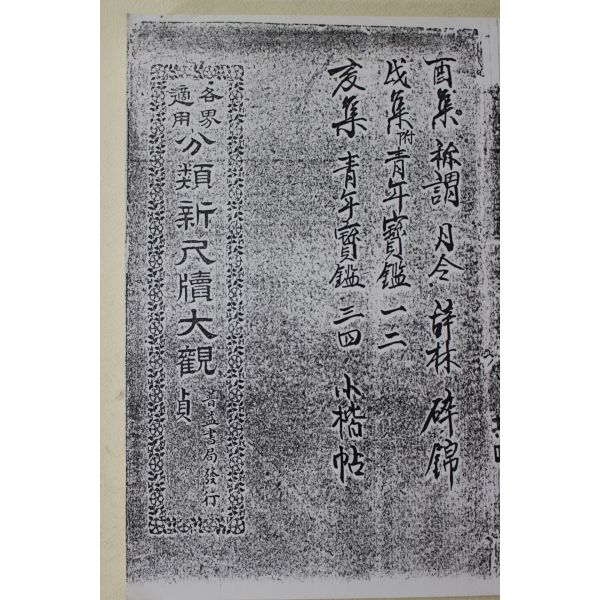 酉集 称謂 月令 詩林 碎錦
戌集 附青年寳鑑 一二
亥集 青年寳鑑 三四 小楷帖
各界適用 分類新尺牘大觀 貞
普益書局發行